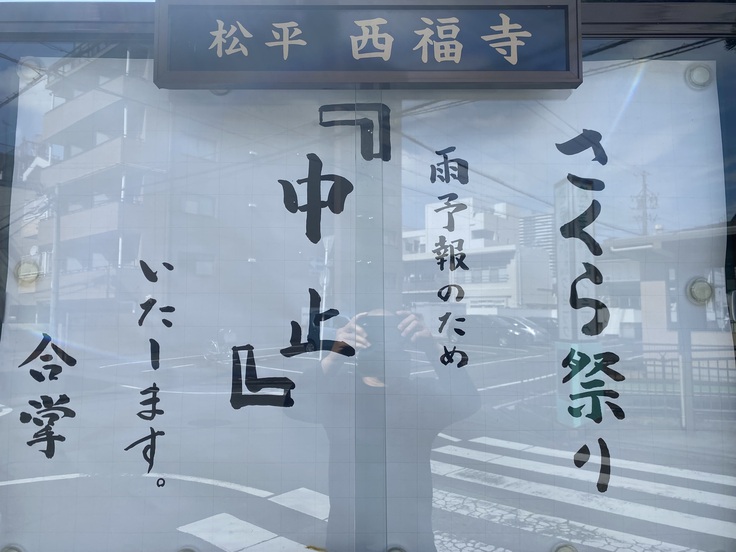 松平 西福寺
さくら祭り
雨予報のため
『中止』
いたします。
合掌